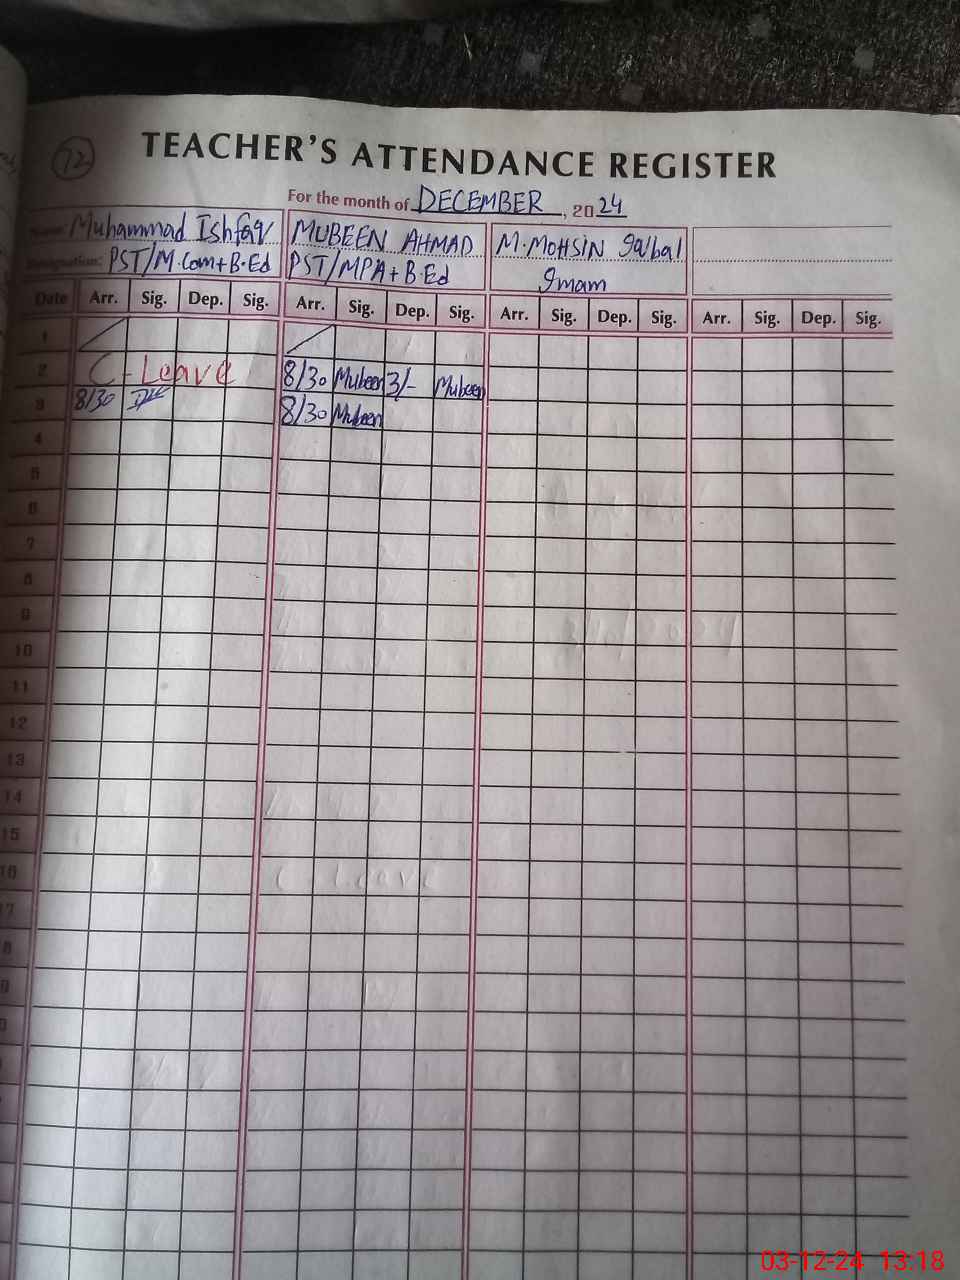 72
TEACHER'S ATTENDANCE REGISTER
For the month of DECEMBER, 2024
Name: Muhammad Ishfaq MUBEEN AHMAD M. MOHSIN Iqbal
Designation: PST/M.Com+B.Ed PST/MPA+B.Ed Imam
Date Arr. Sig. Dep. Sig. Arr. Sig. Dep. Sig. Arr. Sig. Dep. Sig. Arr. Sig. Dep. Sig.
1
2 C-Leave 8/30 Mubeen 3/- Mubeen
3 8/30 8/30 Mubeen
4
5
6
7
8
9
10
11
12
13
14
15
16
C-Leave
17
8
03-12-24 13:18